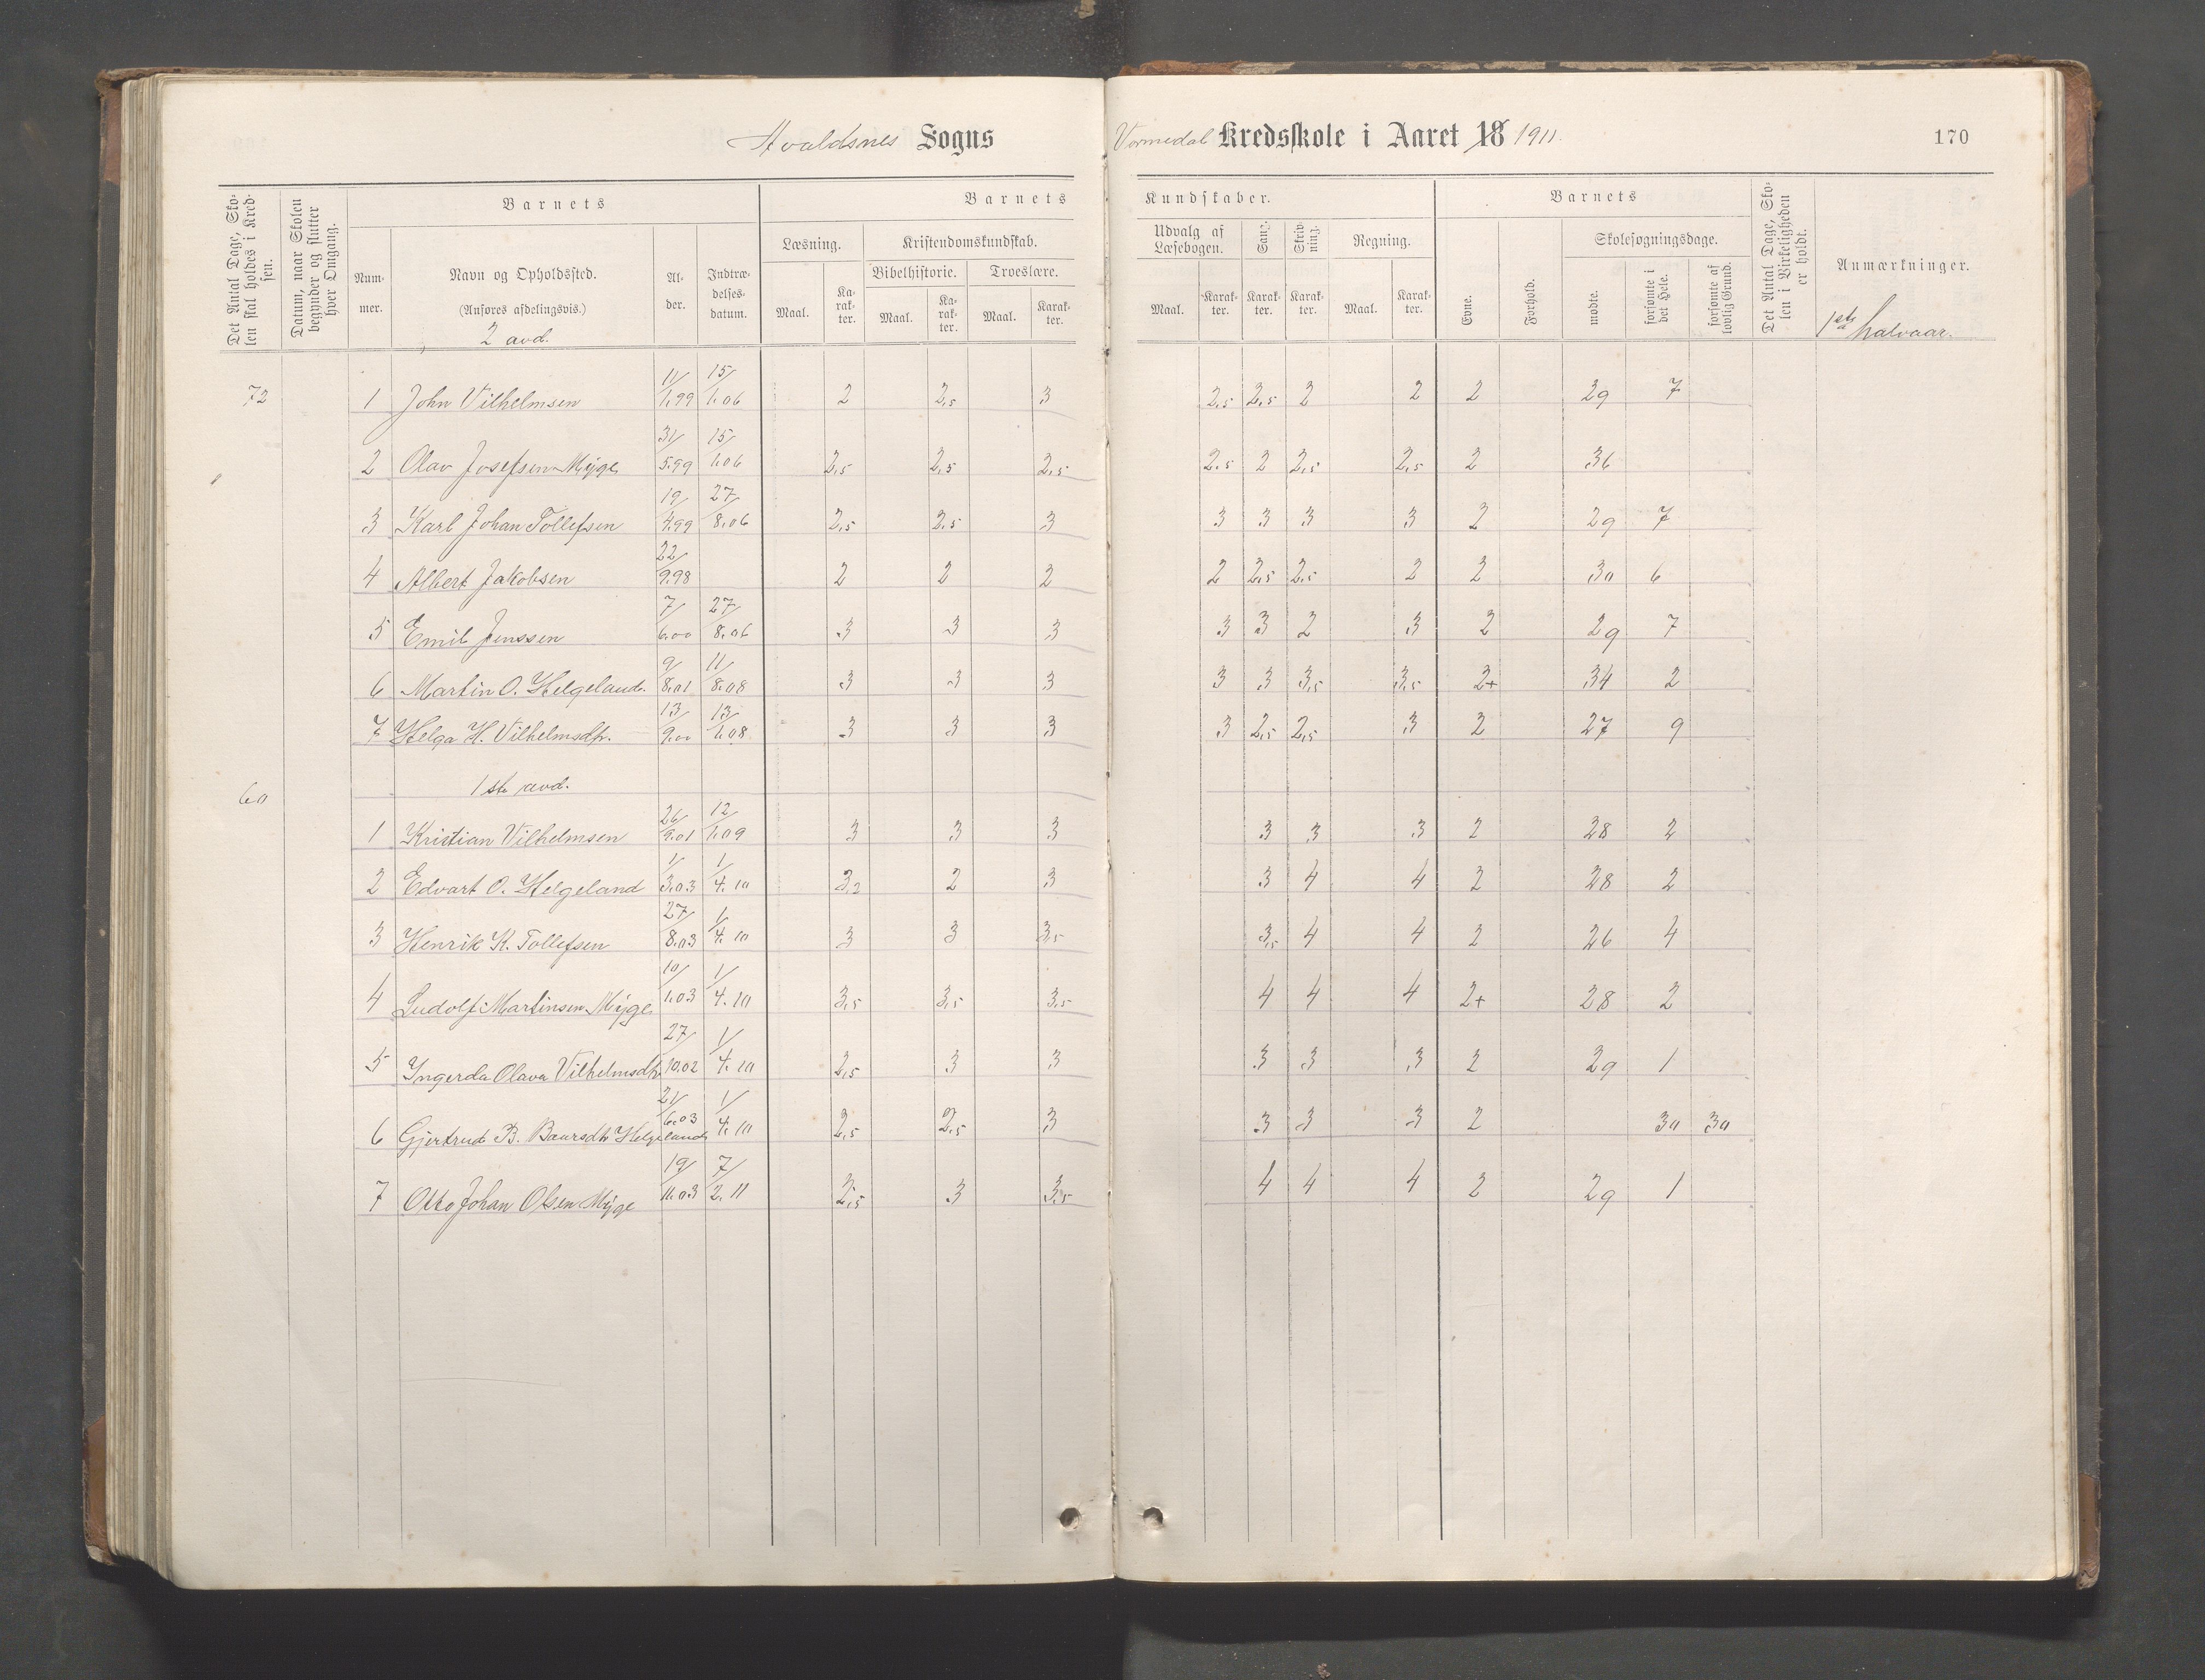 Avaldsnes Sogns Vormedal Kredsskole i Aaret 18 1911. 170
Det Antal Dage, Sko-
len skal holdes i Kred-
sen.
Datum, naar Skolen
begynder og slutter
hver Omgang.
Barnets
Num-
mer.
Navn og Opholdssted.
(Anføres afdelingsvis.)
2 avd.
Al-
der.
Indtræ-
delses-
datum.
Barnets Kundskaber.
Læsning.
Maal.
Ka-
rak-
ter.
Kristendomskundskab.
Bibelhistorie.
Maal.
Ka-
rak-
ter.
Troeslære.
Maal.
Karak-
ter.
Udvalg af
Læsebogen.
Maal.
Karak-
ter.
Sang.
Karak-
ter.
Skriv-
ning.
Karak-
ter.
Regning.
Maal.
Karak-
ter.
Barnets
Evne.
Forhold.
Skolesøgningsdage.
mødte.
forsømte i
det Hele.
forsømte af
lovlig Grund.
Det Antal Dage, Sko-
len i Virkeligheden
er holdt.
Anmærkninger.
1ste halvaar.
72 1 John Vilhelmsen 11/1.99 15/1.06 2 2,5 3 2,5 2,5 2 2 2 29 7
2 Olav Josefsen Myge 31/5.99 15/1.06 2,5 2,5 2,5 2,5 2 2,5 2,5 2 36
3 Karl Johan Tollefsen 19/4.99 27/8.06 2,5 2,5 3 3 3 3 3 2 29 7
4 Albert Jakobsen 22/9.98 2 2 2 2 2,5 2,5 2 2 30 6
5 Emil Jenssen 7/6.00 27/8.06 3 3 3 3 3 2 3 2 29 7
6 Martin O. Helgeland. 9/8.01 11/8.08 3 3 3 3 3 3,5 3,5 2+ 34 2
7 Helga H. Vilhelmsdtr. 13/9.00 13/1.08 3 3 3 3 2,5 2,5 3 2 27 9
60 1ste avd.
1 Kristian Vilhelmsen 26/9.01 12/1.09 3 3 3 3 3 3 2 28 2
2 Edvart O. Helgeland 1/3.03 1/4.10 3,2 2 3 3 4 4 2 28 2
3 Henrik K. Tollefsen 27/8.03 1/4.10 3 3 3,5 3,5 4 4 2 26 4
4 Ludolf Martinsen Myge 10/1.03 1/4.10 3,5 3,5 3,5 4 4 4 2+ 28 2
5 Yngerda Olava Vilhelmsdtr. 27/10.02 1/4.10 2,5 3 3 3 3 3 2 29 1
6 Gjertrud B. Baarsdtr Helgeland 21/6.03 1/4.10 2,5 2,5 3 3 3 3 2 30 30
7 Otto Johan Olsen Myge 19/11.03 7/2.11 2,5 3 3,5 4 4 4 2 29 1